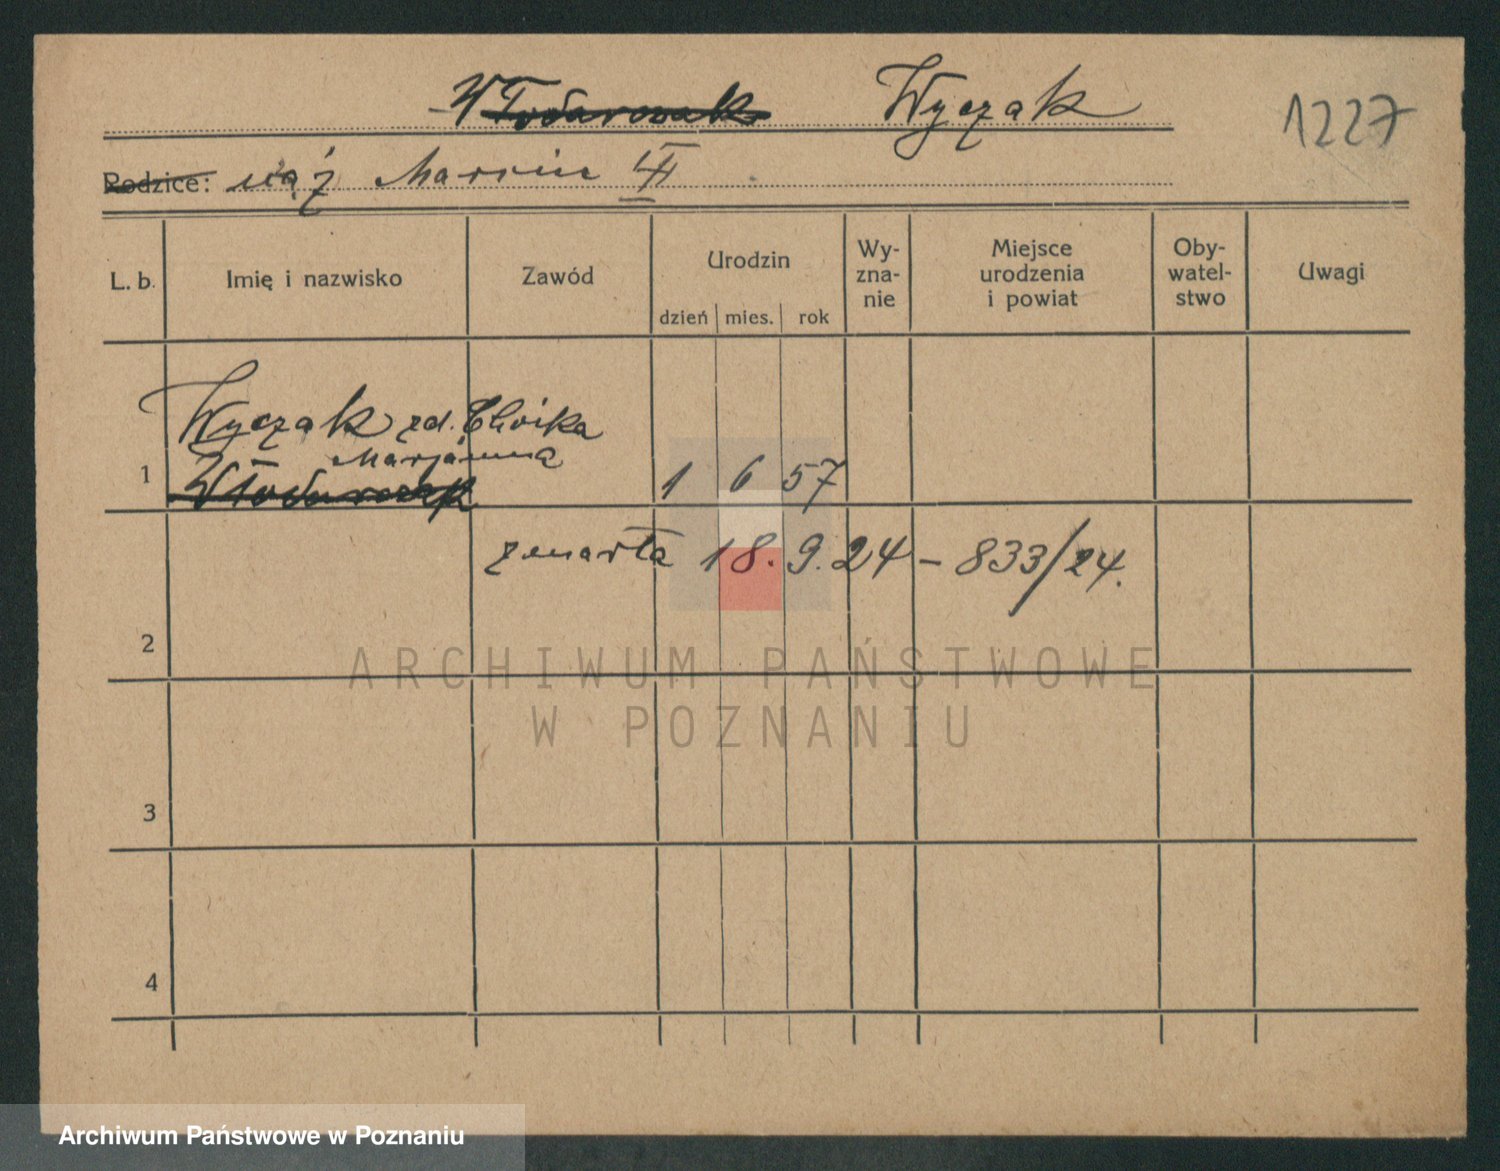 Włodarczak Wyczak 1227
Rodzice: mąż Marcin
L. b. Imię i nazwisko Zawód Urodzin Wy-zna-nie Miejsce urodzenia i powiat Oby-watel-stwo Uwagi
dzień mies. rok
Wyczak zd. Ćwika
Marjanna
1 Włodarczak 1 6 57
zmarła 18. 9. 24 – 833/24.
2
ARCHIWUM PAŃSTWOWE
W POZNANIU
3
4
Archiwum Państwowe w Poznaniu